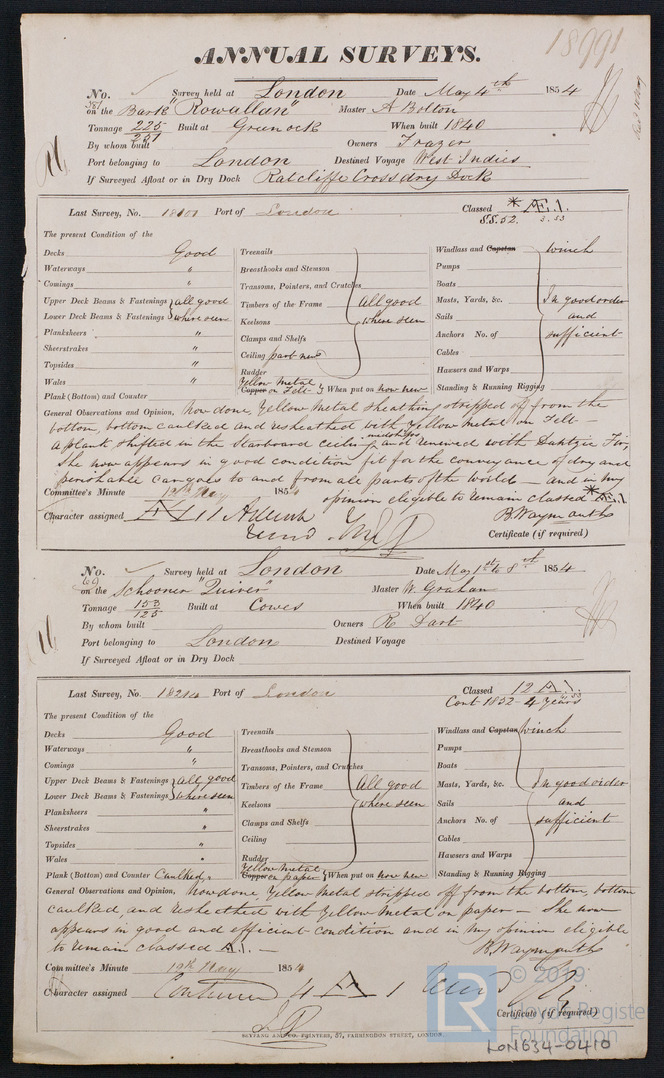 18991
ANNUAL SURVEYS.
No. Survey held at London Date May 4th 1854
on the Bark "Rowallan" Master A Bolton
Tonnage 225 Built at Greenock When built 1840
By whom built Owners Frazer
Port belonging to London Destined Voyage West Indies
If Surveyed Afloat or in Dry Dock Ratcliffe Cross dry Dock
Last Survey, No. Port of London Classed * Æ.1.
S.S. 52. 3.53
The present Condition of the
Decks Good Treenails Windlass and Capstan winch
Waterways " Breasthooks and Stemson Pumps
Comings " Transoms, Pointers, and Crutches Boats
Upper Deck Beams & Fastenings all good Timbers of the Frame All good Masts, Yards, &c. In good order
Lower Deck Beams & Fastenings where seen Keelsons where seen Sails and
Planksheers " Clamps and Shelfs Anchors No. of sufficient
Sheerstrakes " Ceiling part new Cables
Topsides " Rudder Hawsers and Warps
Wales " Yellow Metal Standing & Running Rigging
Plank (Bottom) and Counter Copper on Felt When put on now new
General Observations and Opinion, now done, Yellow Metal sheathing stripped off from the
bottom, bottom caulked and resheathed with Yellow Metal on Felt -
a plank shifted in the starboard ceiling midships and renewed with Dantzic Fir,
She now appears in good condition fit for the conveyance of dry and
perishable cargoes to and from all parts of the world - and in my
Committee's Minute May 185 opinion eligible to remain classed * Æ.1
Character assigned B. Waymouth
Certificate (if required)
No. Survey held at London Date May 1st to 8th 1854
on the Schooner "Quiver" Master W. Graham
Tonnage 153 Built at Cowes When built 1840
125
By whom built Owners R Dart
Port belonging to London Destined Voyage
If Surveyed Afloat or in Dry Dock
Last Survey, No. 18214 Port of London Classed 12 A.1.
Cont 1852 - 4 years
The present Condition of the
Decks Good Treenails Windlass and Capstan winch
Waterways " Breasthooks and Stemson Pumps
Comings " Transoms, Pointers, and Crutches Boats
Upper Deck Beams & Fastenings all good Timbers of the Frame All good Masts, Yards, &c. In good order
Lower Deck Beams & Fastenings where seen Keelsons where seen Sails and
Planksheers " Clamps and Shelfs Anchors No. of sufficient
Sheerstrakes " Ceiling Cables
Topsides " Rudder Hawsers and Warps
Wales " Yellow Metal Standing & Running Rigging
Plank (Bottom) and Counter Caulked " Copper on paper When put on now new
General Observations and Opinion, now done, Yellow Metal stripped off from the bottom, bottom
caulked, and resheathed with Yellow Metal on paper - She now
appears in good and efficient condition and in my opinion eligible
to remain classed A.1. -
B. Waymouth
Committee's Minute 12th May 1854
Character assigned Continued 4 A 1
Certificate (if required)
SEYFANG AND CO. PRINTERS, 57, FARRINGDON STREET, LONDON.
LR © 2019
Lloyd's Register
Foundation
LON634-0410